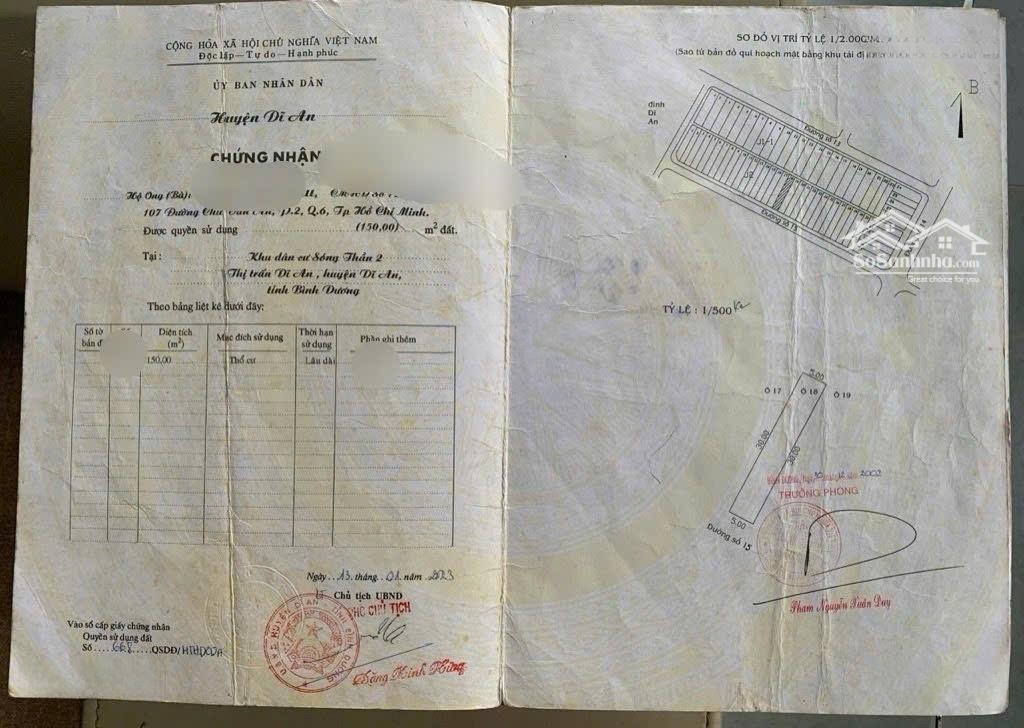 CỘNG HÒA XÃ HỘI CHỦ NGHĨA VIỆT NAM
Độc lập — Tự do — Hạnh phúc
ỦY BAN NHÂN DÂN
Huyện Dĩ An
CHỨNG NHẬN
Hộ Ông (Bà):
107 Đường Chu Văn An, P.2, Q.6, Tp Hồ Chí Minh.
Được quyền sử dụng (150,00) m² đất.
Tại: Khu dân cư Sóng Thần 2
Thị trấn Dĩ An, huyện Dĩ An,
tỉnh Bình Dương
Theo bảng liệt kê dưới đây:
Số tờ bản đ
Diện tích (m²)
Mục đích sử dụng
Thời hạn sử dụng
Phần ghi thêm
150,00 Thổ cư Lâu dài
Ngày..13.tháng..01.năm 2003
Chủ tịch UBND
PHÓ CHỦ TỊCH
Đặng Minh Hưng
Vào sổ cấp giấy chứng nhận
Quyền sử dụng đất
Số....668....QSDĐ/
SƠ ĐỒ VỊ TRÍ TỶ LỆ 1/2.000
(Sao từ bản đồ qui hoạch mặt bằng khu tái đị
B
đình
Dĩ
An
Đường số 13
J1-1
J2
Đường số 15
SoSanhnha.com
Great choice for you
TỶ LỆ : 1/500
5.00
Ô 17
Ô 18
Ô 19
30.00
30.00
5.00
Đường số 15
12 năm 2002
TRƯỞNG PHÒNG
Phạm Nguyễn Xuân Duy